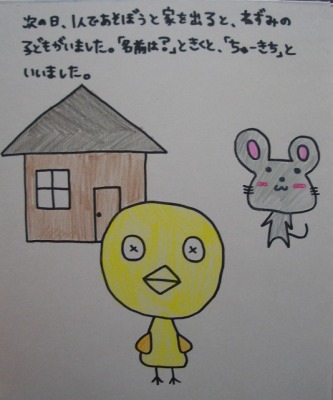 次の日、1人であそぼうと家を出ると、ねずみの
子どもがいました。「名前は?」ときくと、「ちゅーきち」と
いいました。